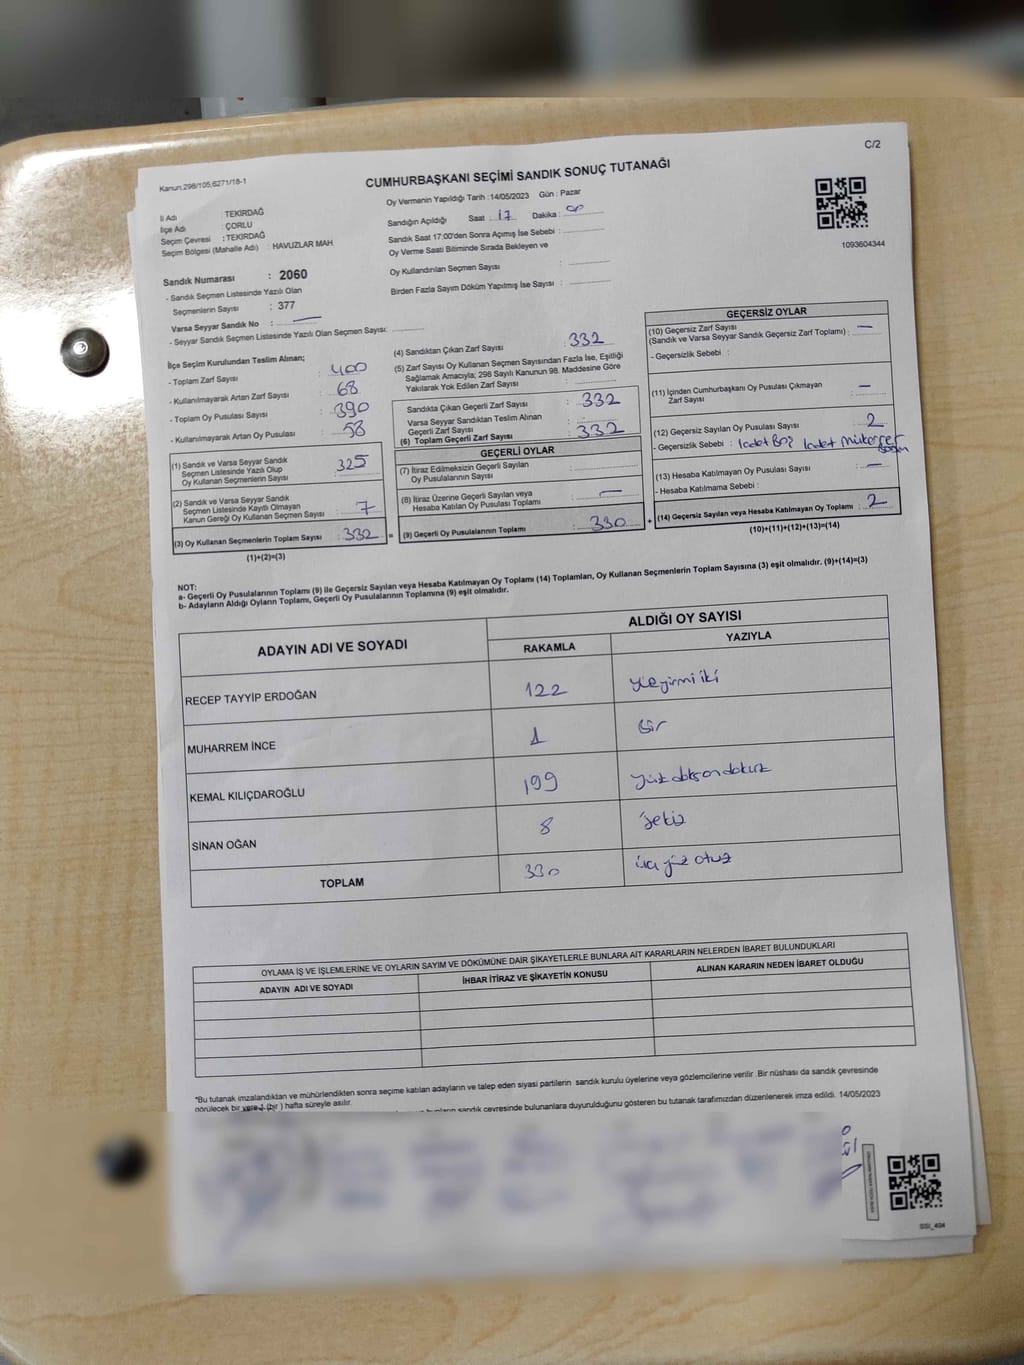 C/2
Kanun:298/105,6271/18-1
CUMHURBAŞKANI SEÇİMİ SANDIK SONUÇ TUTANAĞI
Oy Vermenin Yapıldığı Tarih :14/05/2023 Gün : Pazar
İl Adı : TEKİRDAĞ
İlçe Adı : ÇORLU
Seçim Çevresi : TEKİRDAĞ
Seçim Bölgesi (Mahalle Adı) : HAVUZLAR MAH
Sandık Numarası : 2060
- Sandık Seçmen Listesinde Yazılı Olan
Seçmenlerin Sayısı : 377
Varsa Seyyar Sandık No :
- Seyyar Sandık Seçmen Listesinde Yazılı Olan Seçmen Sayısı:
Sandığın Açıldığı Saat : 17 Dakika :
Sandık Saat 17:00'den Sonra Açımış İse Sebebi :
Oy Verme Saati Bitiminde Sırada Bekleyen ve
Oy Kullandırılan Seçmen Sayısı :
Birden Fazla Sayım Döküm Yapılmış İse Sayısı :
1093604344
İlçe Seçim Kurulundan Teslim Alınan;
- Toplam Zarf Sayısı : 400
- Kullanılmayarak Artan Zarf Sayısı : 68
- Toplam Oy Pusulası Sayısı : 390
- Kullanılmayarak Artan Oy Pusulası : 58
(1) Sandık ve Varsa Seyyar Sandık
Seçmen Listesinde Yazılı Olup
Oy Kullanan Seçmenlerin Sayısı : 325
(2) Sandık ve Varsa Seyyar Sandık
Seçmen Listesinde Kayıtlı Olmayan
Kanun Gereği Oy Kullanan Seçmen Sayısı : 7
(3) Oy Kullanan Seçmenlerin Toplam Sayısı : 332
(1)+(2)=(3)
(4) Sandıktan Çıkan Zarf Sayısı : 332
(5) Zarf Sayısı Oy Kullanan Seçmen Sayısından Fazla İse, Eşitliği
Sağlamak Amacıyla; 298 Sayılı Kanunun 98. Maddesine Göre
Yakılarak Yok Edilen Zarf Sayısı :
Sandıkta Çıkan Geçerli Zarf Sayısı : 332
Varsa Seyyar Sandıktan Teslim Alınan
Geçerli Zarf Sayısı :
(6) Toplam Geçerli Zarf Sayısı : 332
GEÇERLİ OYLAR
(7) İtiraz Edilmeksizin Geçerli Sayılan
Oy Pusulalarının Sayısı :
(8) İtiraz Üzerine Geçerli Sayılan veya
Hesaba Katılan Oy Pusulası Toplamı : —
= (9) Geçerli Oy Pusulalarının Toplamı : 330
GEÇERSİZ OYLAR
(10) Geçersiz Zarf Sayısı
(Sandık ve Varsa Seyyar Sandık Geçersiz Zarf Toplamı) : —
- Geçersizlik Sebebi :
(11) İçinden Cumhurbaşkanı Oy Pusulası Çıkmayan
Zarf Sayısı : —
(12) Geçersiz Sayılan Oy Pusulası Sayısı : 2
- Geçersizlik Sebebi : 1 adet Boş 1 adet mükerrer
(13) Hesaba Katılmayan Oy Pusulası Sayısı : —
- Hesaba Katılmama Sebebi :
+ (14) Geçersiz Sayılan veya Hesaba Katılmayan Oy Toplamı : 2
(10)+(11)+(12)+(13)=(14)
NOT:
a- Geçerli Oy Pusulalarının Toplamı (9) ile Geçersiz Sayılan veya Hesaba Katılmayan Oy Toplamı (14) Toplamları, Oy Kullanan Seçmenlerin Toplam Sayısına (3) eşit olmalıdır. (9)+(14)=(3)
b- Adayların Aldığı Oyların Toplamı, Geçerli Oy Pusulalarının Toplamına (9) eşit olmalıdır.
ADAYIN ADI VE SOYADI
ALDIĞI OY SAYISI
RAKAMLA YAZIYLA
RECEP TAYYİP ERDOĞAN 122 yüzyirmi iki
MUHARREM İNCE 1 bir
KEMAL KILIÇDAROĞLU 199 yüz doksan dokuz
SİNAN OĞAN 8 sekiz
TOPLAM 330 üç yüz otuz
OYLAMA İŞ VE İŞLEMLERİNE VE OYLARIN SAYIM VE DÖKÜMÜNE DAİR ŞİKAYETLERLE BUNLARA AİT KARARLARIN NELERDEN İBARET BULUNDUKLARI
ADAYIN ADI VE SOYADI İHBAR İTİRAZ VE ŞİKAYETİN KONUSU ALINAN KARARIN NEDEN İBARET OLDUĞU
*Bu tutanak imzalandıktan ve mühürlendikten sonra seçime katılan adayların ve talep eden siyasi partilerin sandık kurulu üyelerine veya gözlemcilerine verilir .Bir nüshası da sandık çevresinde
görülecek bir yere 1 (bir ) hafta süreyle asılır.
sandık çevresinde bulunanlara duyurulduğunu gösteren bu tutanak tarafımızdan düzenlenerek imza edildi. 14/05/2023
SSI_404